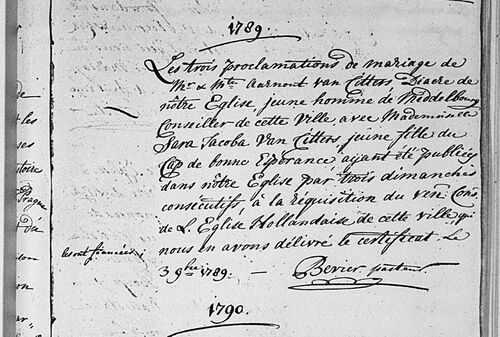 1789.
Les trois proclamations de mariage de
Mr. & Mtre Aarnout van Citters Diacre de
nôtre Eglise jeune homme de Middelbourg
Conseiller de cette Ville avec Mademoiselle
Sara Jacoba Van Citters, jeune fille du
Cap de bonne Esperance, ayant été publiées
dans nôtre Eglise par trois dimanches
consecutifs, à la réquisition du ven: Cons.
de L'Eglise Hollandaise de cette ville,
nous en avons délivré le certificat. Le
3 9bre 1789. — Berier pasteur.
les ont fiancés,
1790.